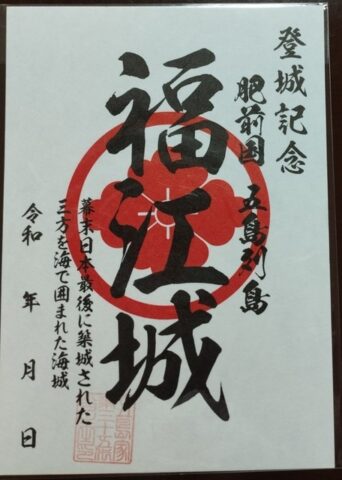 登城記念
肥前国 五島列島
福江城
幕末日本最後に築城された
三方を海で囲まれた海城
令和 年 月 日